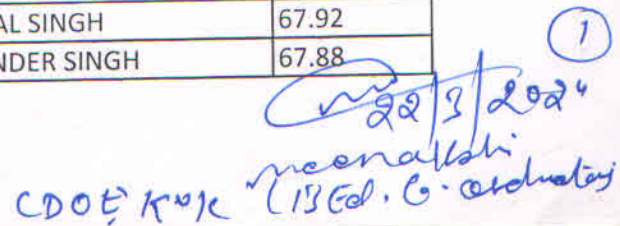 AL SINGH 67.92
NDER SINGH 67.88
1
22/3/2024
meenakshi
CDOE KUK (B.Ed. Co-ordinator)